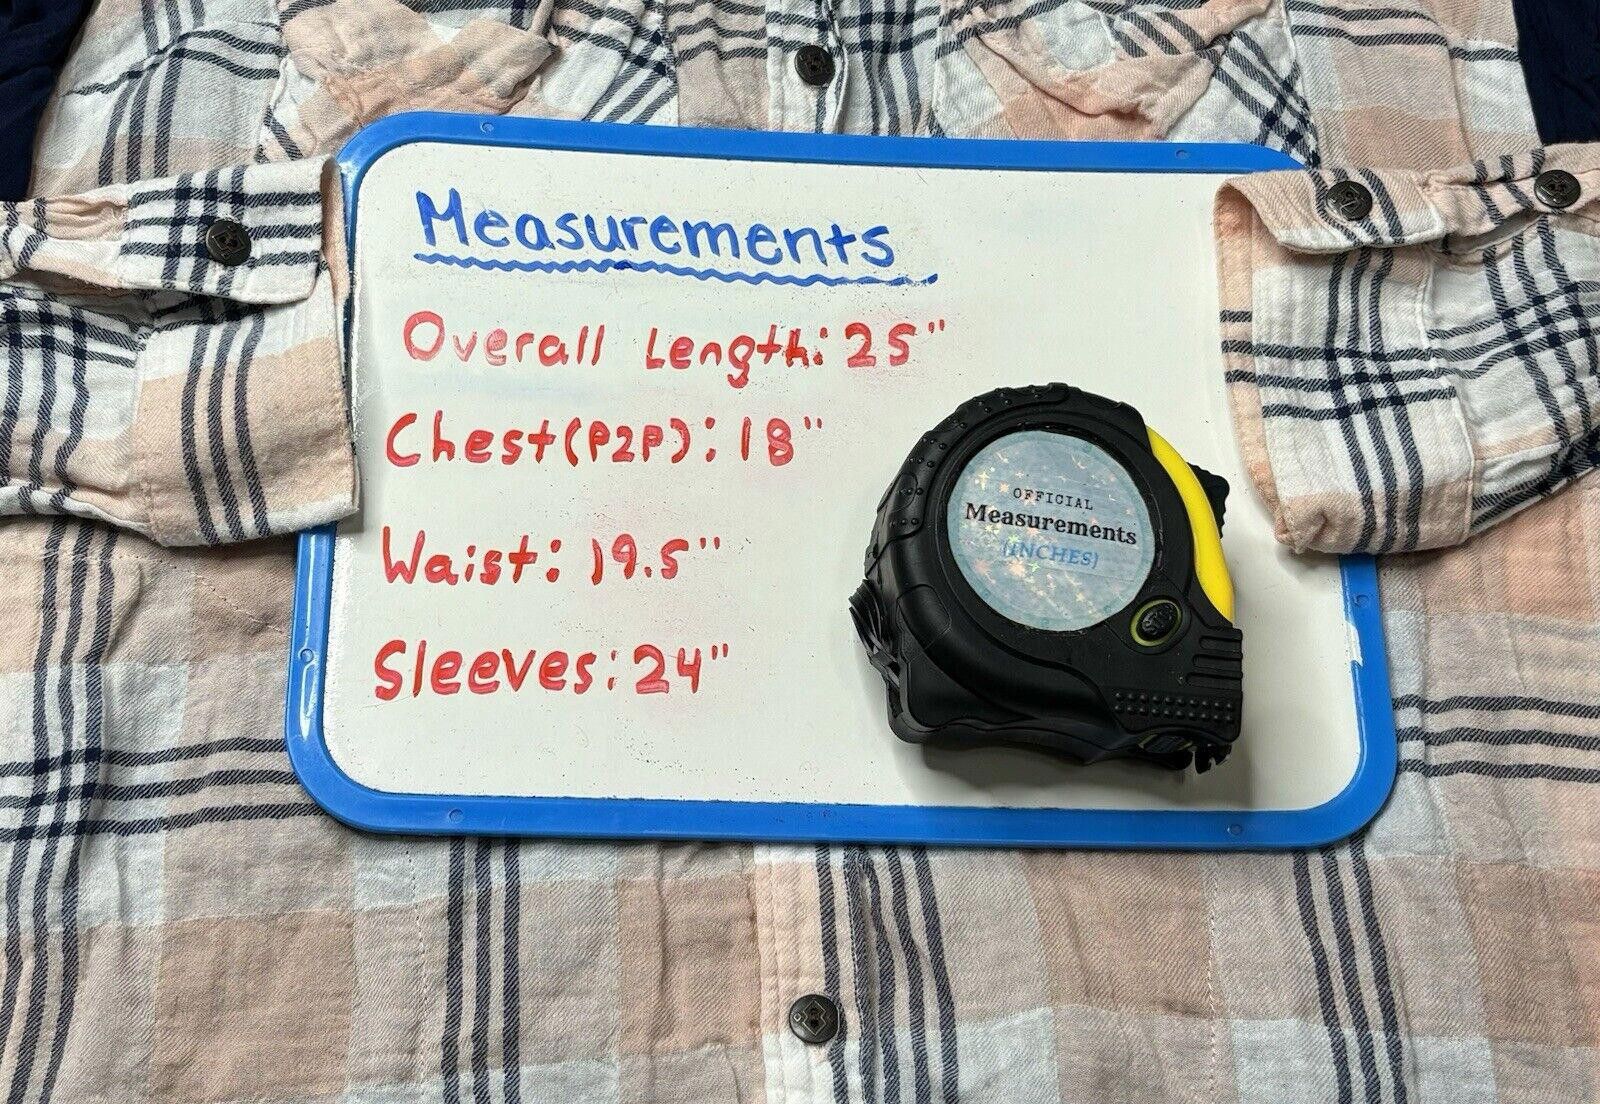 Measurements
Overall Length: 25"
Chest(P2P): 18"
Waist: 19.5"
Sleeves: 24"
OFFICIAL
Measurements
(INCHES)